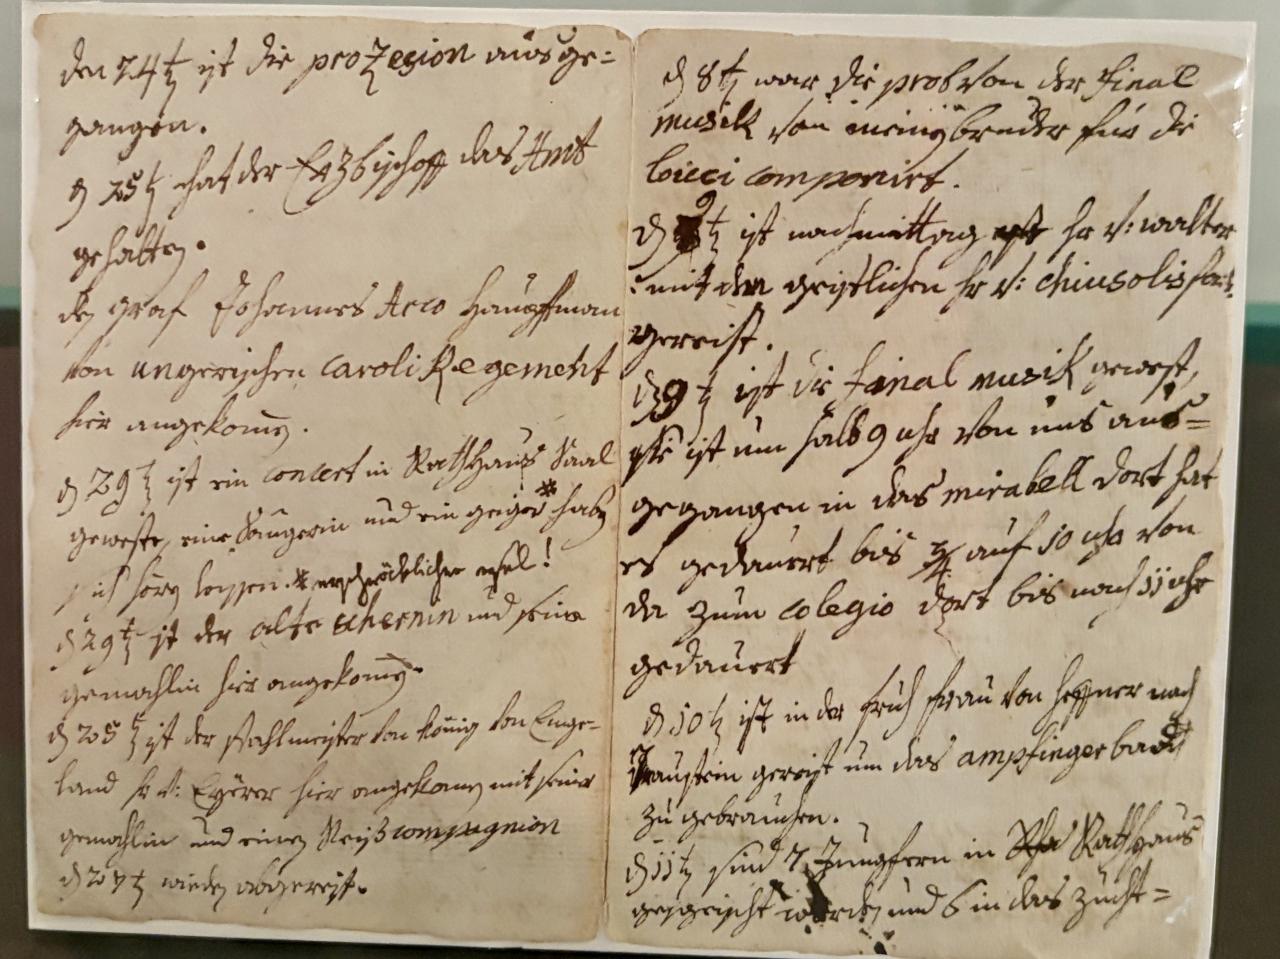 den 24t ist die prozesion ausge=
gangen.
d 25t hat der Erzbischoff das Amt
gehalten.
den graf Johannes Arco hauptman
von ungerischen caroli Regement
hier angekomen.
d 29t ist ein concert in Rathhaus Saal
geweste, eine Sangerin und ein geiger * haben
sich hören lassen. * erschröcklicher esel!
d 29t ist der alte und seine
gemahlin hier angekomen.
d 25t ist der stahlmeister von könig von Enge=
land hr v: hier angekomen mit seiner
gemahlin und einen Reiß compagnion
d 27t wieder abgereist.
d 8t war die prob von der final
musik von meinen bruder für die
componirt.
d 9t ist nachmittag hr v: walter
mit den geistlichen hr v: chiusolis fort
gereist.
d 9t ist die final musik gewest,
ist um halb 9 uhr von uns aus=
gegangen in das mirabell dort hat
es gedauert bis 3/4 auf 10 uhr von
da zum colegio dort bis nach 11 uhr
gedauert
d 10t ist in der früh frau von heffner nach
traustein gereist um das ampfinger badt
zu gebrauchen.
d 11t sind 7 Jungfern in Rathhaus
werden und 6 in das zucht=